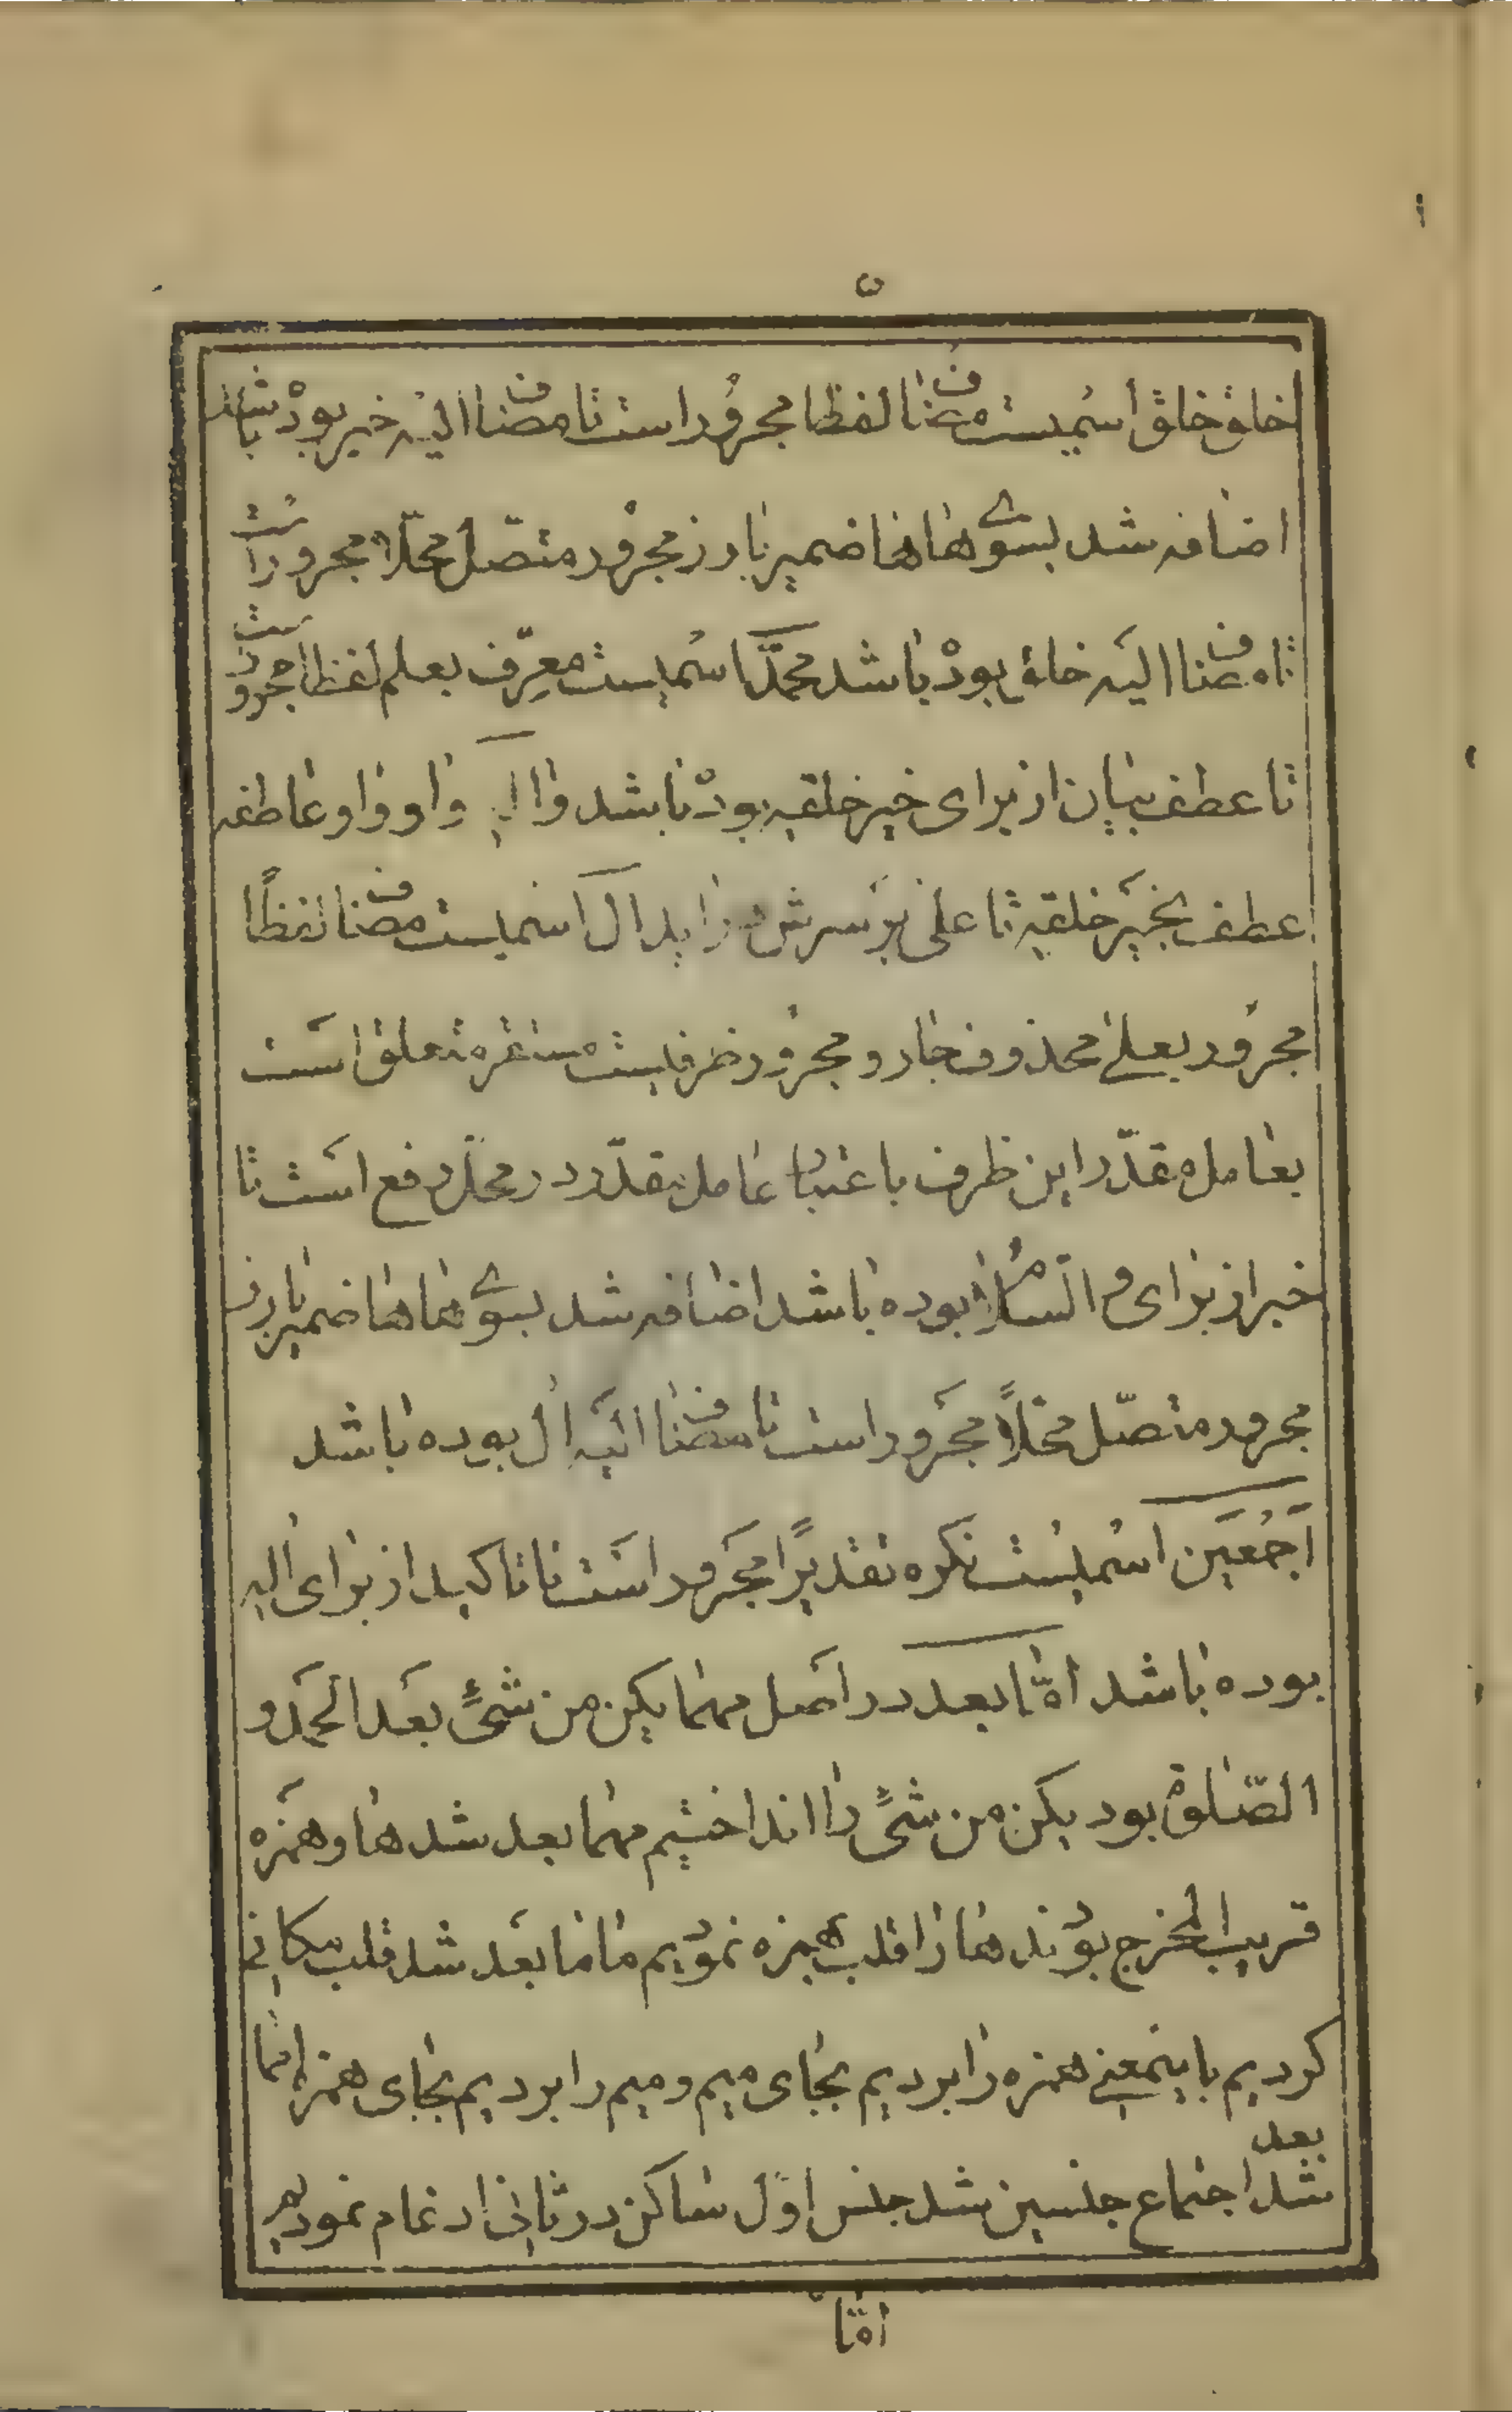 ۵
خلق خلق اسمیست مضاف لفظا مجرور است تا مضاف الیه خیر بوده باشد
اضافه شد بسوی ها ها ضمیر بارز مجرور متصل محلا مجرور است
تا مضاف الیه خلق بوده باشد محمد اسمیست معرف بعلم لفظا مجرور است
تا عطف بیان از برای خیر خلقه بوده باشد واله واو واو عاطفه
عطف بخیر خلقه تا علی بر سرش در اید ال اسمیست مضاف لفظاً
مجرور بعلی محذوف جار و مجرور ظرفیست مستقر متعلق است
بعامل مقدر این ظرف باعتبار عامل مقدر در محل رفع است تا
خبر از برای والسلام بوده باشد اضافه شد بسوی ها ها ضمیر بارز
مجرور متصل محلاً مجرور است تا مضاف الیه ال بوده باشد
اَجْمَعین اسمیست نکره تقدیرًا مجرور است تا تاکید از برای اله
بوده باشد امّا بعد در اصل مهما یکن من شیءً بعد الحمد و
الصّلوة بود یکن من شیءً را انداختیم مهما بعد شد ها و همزه
قریب المخرج بودند ها را قلب بهمزه نمودیم ماما بعد شد قلب مکانی
کردیم باینمعنی همزه را بردیم بجای میم و میم را بردیم بجای همزه امما
بعد
شد اجتماع جنسین شد جنس اوّل ساکن در ثانی ادغام نمودیم
امّا